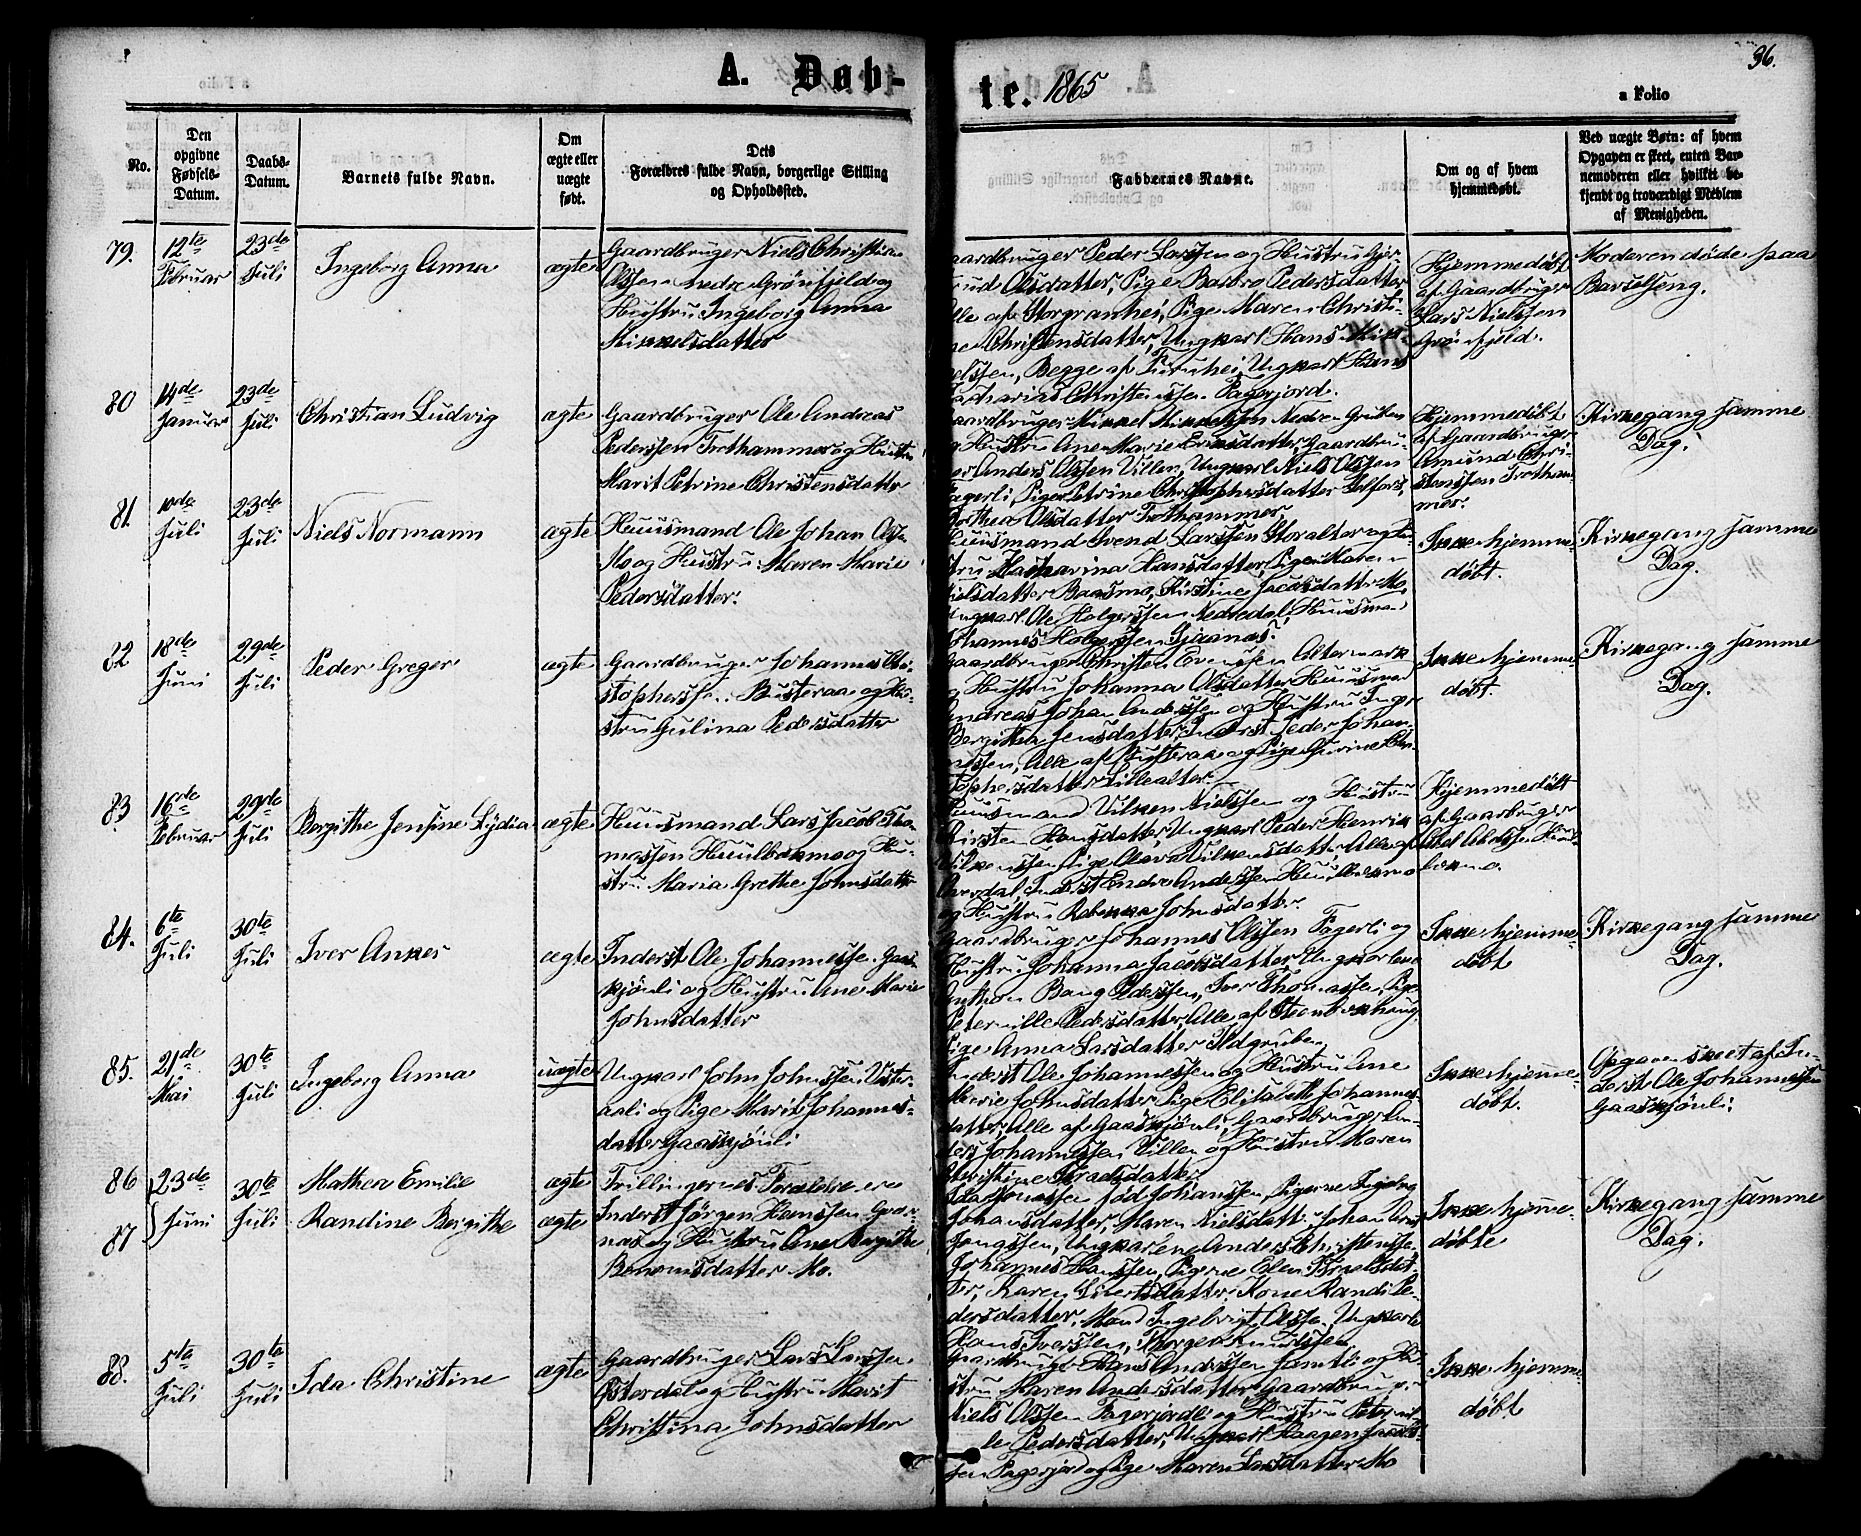 36.
A. Døb-
te. 1865
a Folio
No.
Den opgivne Fødsels-Datum.
Daabs-Datum.
Barnets fulde Navn.
Om ægte eller uægte født.
Dets Forældres fulde Navn, borgerlige Stilling og Opholdssted.
Faddernes Navne.
Om og af hvem hjemmedøbt.
Ved uægte Børn: af hvem Opgaven er skeet, enten Barnemoderen eller hvilket bekjendt og troværdigt Medlem af Menigheden.
79.
12te Februar
23de Juli
Ingeborg Anna
ægte
Gaardbruger Niels Christian
Olssen nedre Grønfjeld og
Hustru Ingeborg Anna
Mikkelsdatter
Gaardbruger Peder Larssen og Hustru
Olsdatter, Pige Barbro Pedersdatter
Alle af Storgranhei, Pige Maren Christi-
ne Christensdatter, Ungkarl Hans Mik-
kelssen, Begge af Furuhei, Ungkarl
Zacharias Christenssen Fagerjord.
Hjemmedøbt
af Gaardbruger
Lars Nielssen
Grønfjeld.
Moderen døde paa
Barselseng.
80
14de Januar
23de Juli
Christian Ludvig
ægte
Gaardbruger Ole Andreas
Pederssen Trothammer og Hustru
Marit Petrine Christensdatter
Gaardbruger Mikkel Mikkelssen Nedre
og Hustru Ane Marie Eriksdatter, Gaardbru-
ger Anders Olssen Villen, Ungkarl Niels Olssen
Fagerli, Piger Petrine Christophersdatter Selfors,
Dorthea Olsdatter Trothammer.
Hjemmedøbt
af Gaardbruger
Amund Chri-
stenssen Trotham-
mer.
Kirkegang samme
Dag.
81.
10de Juli
23de Juli
Niels Normann
ægte
Huusmand Ole Johan Olssen
Mo og Hustru Maren Marie
Pedersdatter.
Huusmand Svend Larssen Storalter og Hu-
stru Katharina Hansdatter, Piger Maren
Nielsdatter Baasmo, Kirstine Jacobsdatter Mo,
Ungkarl Ole Holgerssen Nedredal, Huusmand
Johannes Holgerssen
Ikke hjemme-
døbt.
Kirkegang samme
Dag.
82
18de Juni
29de Juli
Peder Greger
ægte
Gaardbruger Johannes Chri-
stopherssen Bustneraa og Hu-
stru Gulina Pedersdatter
Gaardbruger Christen Evenssen Altermark
og Hustru Johanna Olsdatter, Huusmand
Andreas Johan Anderssen og Hustru Inger
Bergitha Jensdatter, Inderst Peder Johan-
nessen, Alle af og Pige Gurine Chri-
stophersdatter Lillealter.
Ikke hjemme-
døbt.
Kirkegang samme
Dag.
83.
16de Februar
29de Juli
Bergithe Jensine Lydia
ægte
Huusmand Lars Jacob Tho-
massen og Hu-
stru Maria Grethe Johnsdatter
Huusmand Vilken Nielssen og Hustru
Kirsten Hansdatter, Ungkarl Peder Henrik
Vilkenssen, Pige Olava Vilkensdatter, Alle af
Inderst Endre Anderssen
og Hustru Rebekka Johnsdatter.
Hjemmedøbt
af Gaardbruger
Abel Abelssen
84.
6te Juli
30te Juli
Iver Anker
ægte
Inderst Ole Johannessen Gaas-
kjønli og Hustru Ane Marie
Johnsdatter
Gaardbruger Johannes Olssen Fagerli og
Hustru Johanna Jacobsdatter, Ungkarlene
Anthon Bang Pederssen, Iver Thomassen, Pige
Petermille Pedersdatter, Alle af
Pige Anna Larsdatter Ildgruben
Ikke hjemme-
døbt
Kirkegang samme
Dag.
85.
21de Mai
30te Juli
Ingeborg Anna
uægte
Ungkarl John Johnssen
og Pige Marit Johannes-
datter Gaaskjønli
Inderst Ole Johannessen og Hustru Ane
Marie Johnsdatter, Pige Elisabeth Johannes-
datter, Alle af Gaaskjønli, Gaardbruger An-
ders Johannessen Villen og Hustru Maren
Christine
Ikke hjemme-
døbt.
Opgaven skeet af In-
derst Ole Johannessen
Gaaskjønli.
86
87
23de Juni
30te Juli
Mathea Emilie
Randine Bergithe
ægte
ægte
Trillingernes Forældre ere
Inderst Jørgen Hanssen
og Hustru Ane Bergithe
Benonisdatter Mo.
Johanssen, Pigerne Ingeborg
Johansdatter, Maren Nielsdatter, Johan
Ungkarlene Anders Christenssen,
Johannes Hanssen, Pigerne Elen
Karen Sivertsdatter, Kone Randi Pe-
dersdatter, Mand Ingebrigt Olssen, Ungkarle
Hans Iverssen,
Ikke hjemme-
døbte
Kirkegang samme
Dag.
88.
5te Juli
30te Juli
Ida Christine
ægte
Gaardbruger Lars Larssen
Østerdal og Hustru Marit
Christina Johnsdatter
Gaardbruger Hans Anderssen og Hu-
stru Maren Andersdatter, Gaardbruger
Niels Olssen og Hustru Petermil-
le Pedersdatter, Ungkarl Haagen Jacobs-
sen Fagerjord og Pige Maren Larsdatter Mo
Ikke hjemme-
døbt